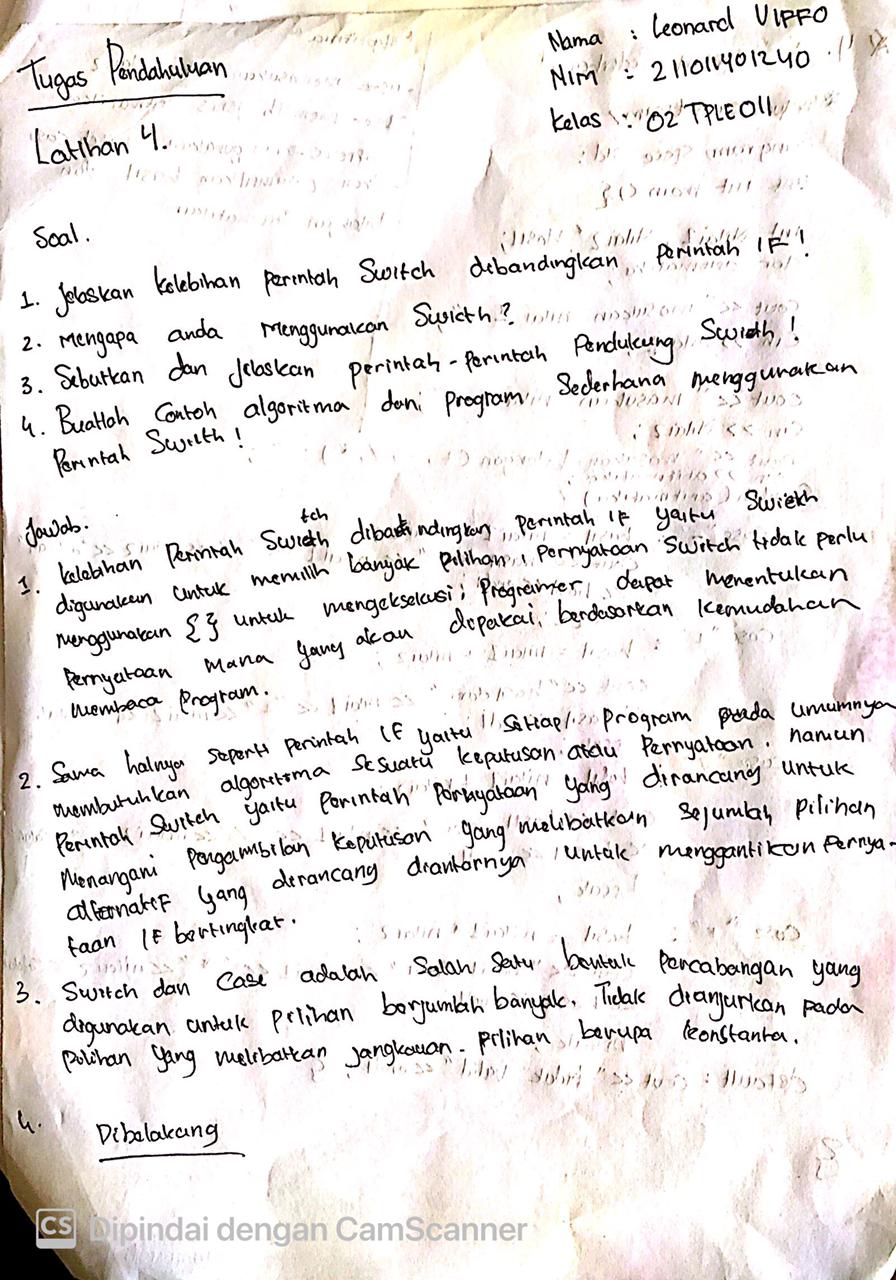 Tugas Pendahuluan
Nama : Leonard VIPFO
Nim : 211011401240
Kelas : 02 TPLE011
Latihan 4.
Soal.
1. Jelaskan kelebihan perintah Switch dibandingkan perintah IF!
2. Mengapa anda menggunakan Swicth?
3. Sebutkan dan Jelaskan perintah-perintah Pendukung Swicth!
4. Buatlah Contoh algoritma dan program Sederhana menggunakan
Perintah Swicth!
Jawab.
1. kelebihan Perintah Switch dibandingkan perintah IF yaitu Swicth
digunakan untuk memilih banyak pilihan, pernyataan Switch tidak perlu
menggunakan {} untuk mengeksekusi; Programer dapat menentukan
Pernyataan mana yang akan dipakai, berdasarkan kemudahan
membaca Program.
2. Sama halnya seperti perintah IF yaitu Setiap program pada umumnya
membutuhkan algoritma sesuatu keputusan atau Pernyataan. namun
Perintah Switch yaitu Perintah Pernyataan yang dirancang untuk
Menangani Pengambilan keputusan yang melibatkan Sejumlah pilihan
alternatif yang dirancang diantarnya untuk menggantikan Pernya-
taan IF bertingkat.
3. Switch dan Case adalah Salah Satu bentuk Percabangan yang
digunakan untuk pilihan berjumlah banyak. Tidak dianjurkan pada
pilihan yang melibatkan jangkauan. pilihan berupa konstanta.
4. Dibelakang
CS Dipindai dengan CamScanner